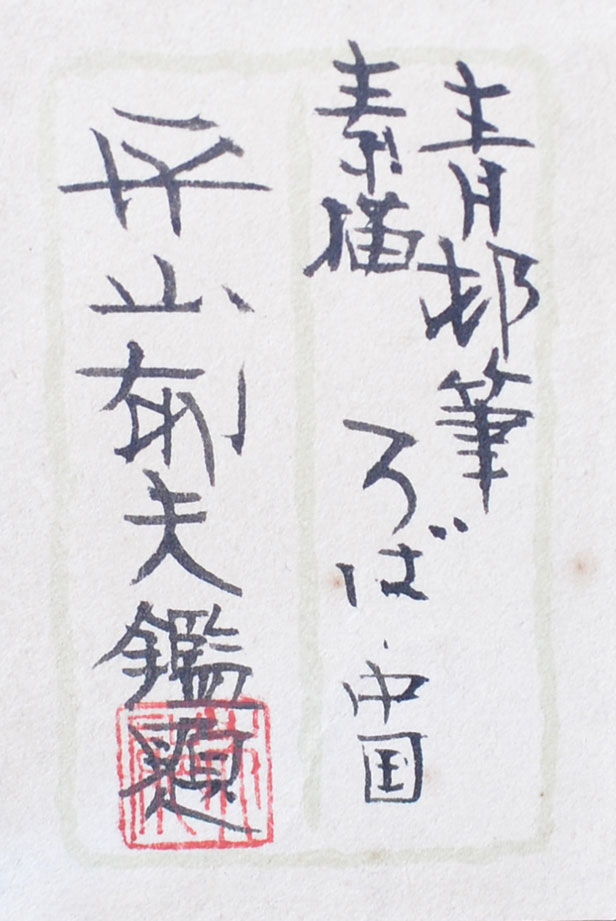 青邨筆
素描 ろば 中国
平山郁夫鑑題